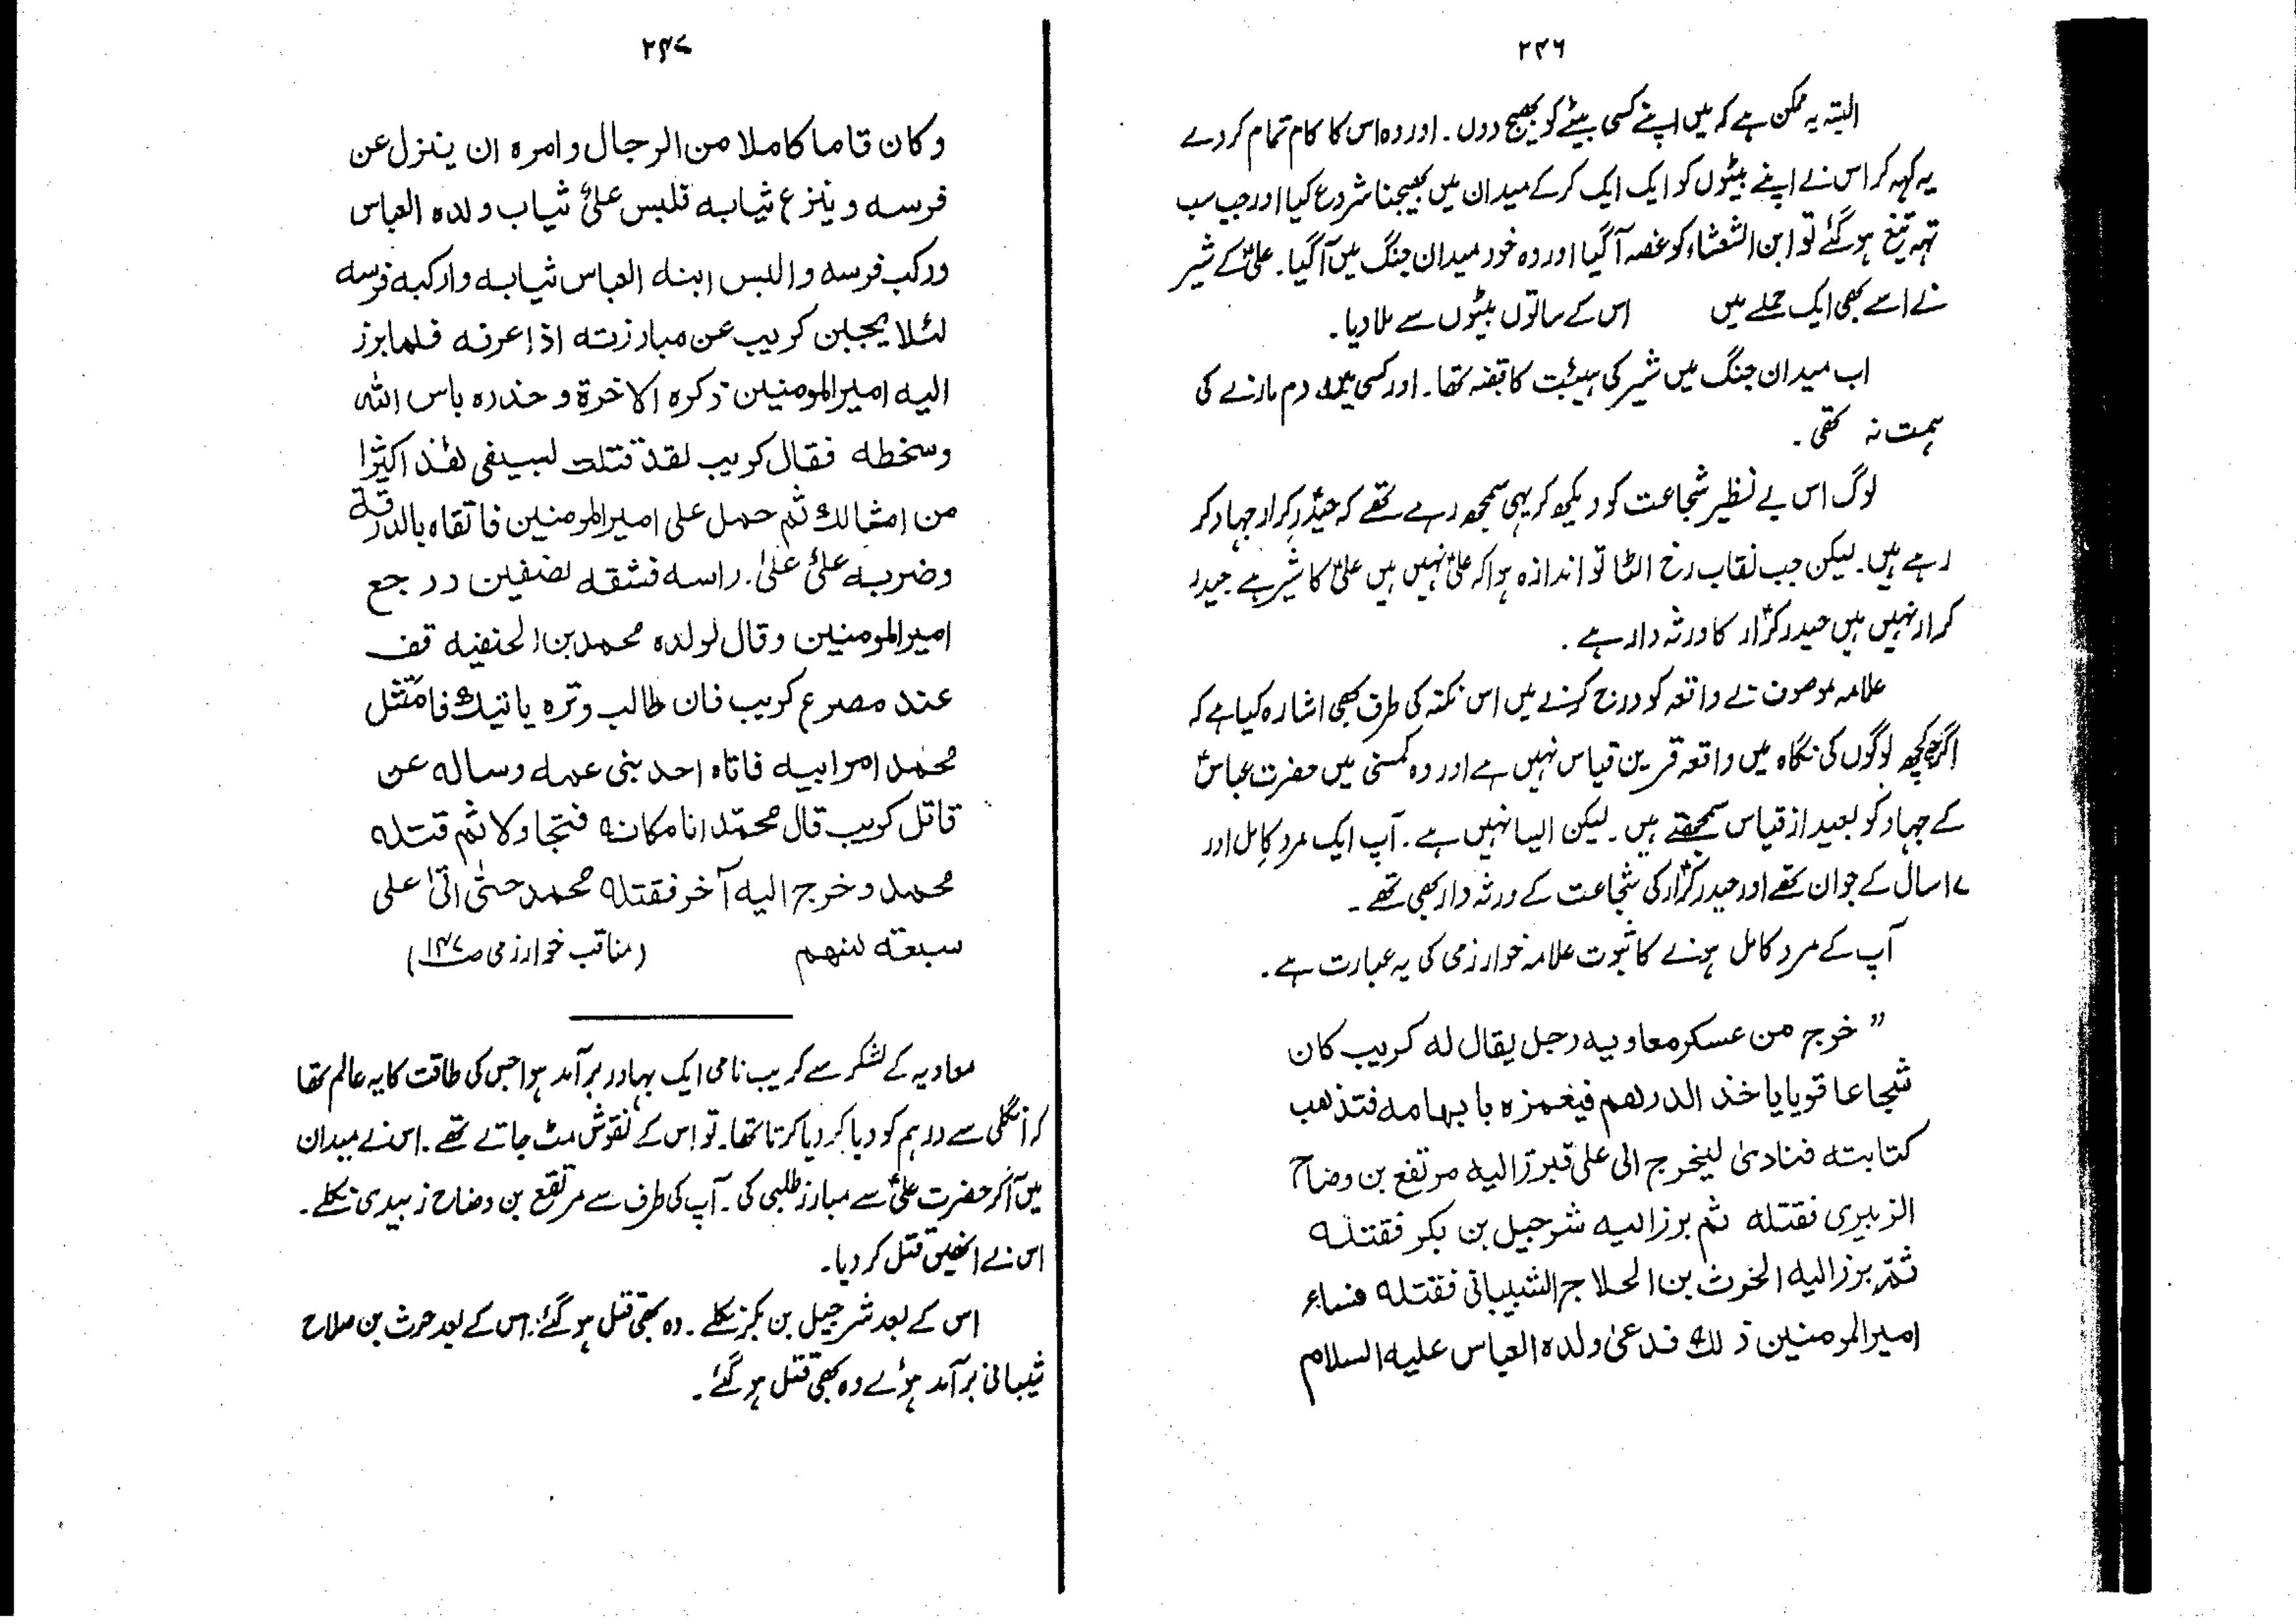 ۲۴۶
البتہ یہ ممکن ہے کہ میں اپنے کسی بیٹے کو بھیج دوں۔ اور وہ اس کا کام تمام کر دے
یہ کہہ کر اس نے اپنے بیٹوں کو ایک ایک کر کے میدان میں بھیجنا شروع کیا اور جب سب
تہہ تیغ ہو گئے تو ابن الشعثاء کو غصہ آ گیا اور وہ خود میدان جنگ میں آ گیا۔ علیؑ کے شیر
نے اسے بھی ایک حملے میں اس کے ساتوں بیٹوں سے ملا دیا۔
اب میدان جنگ میں شیر کی ہیئبت کا قبضہ تھا۔ اور کسی میں دم مارنے کی
ہمت نہ تھی۔
لوگ اس بے نظیر شجاعت کو دیکھ کر یہی سمجھ رہے تھے کہ حیدرؑ کرار جہاد کر
رہے ہیں۔ لیکن جب نقاب رخ الٹا تو اندازہ ہوا کہ علیؑ نہیں ہیں علیؑ کا شیر ہے حیدر
کرار نہیں ہیں حیدر کرارؑ کا ورثہ دار ہے۔
علامہ موصوف نے واقعہ کو درج کرنے میں اس نکتہ کی طرف بھی اشارہ کیا ہے کہ
اگرچہ کچھ لوگوں کی نگاہ میں واقعہ قرین قیاس نہیں ہے اور وہ کمسنی میں حضرت عباسؑ
کے جہاد کو بعید از قیاس سمجھتے ہیں۔ لیکن ایسا نہیں ہے۔ آپ ایک مرد کامل اور
۱۷ سال کے جوان تھے اور حیدر کرارؑ کی شجاعت کے ورثہ دار بھی تھے۔
آپ کے مرد کامل ہونے کا ثبوت علامہ خوارزمی کی یہ عبارت ہے۔
" خرج من عسکر معاویہ رجل یقال لہ کریب کان
شجاعا قویا یاخذ الدرھم فیغمزہ بابہامہ فتذھب
کتابتہ فنادیٰ لیخرج الی علی فبرز الیہ مرتفع بن وضاح
الزبیری فقتلہ ثم برز الیہ شرجیل بن بکر فقتلہ
ثمّ برز الیہ الخوث بن الحلاج الشیبانی فقتلہ فساء
امیر المومنین ذلک فدعیٰ ولدہ العباس علیہ السلام
۲۴۷
وکان قاما کاملا من الرجال وامرہ ان ینزل عن
فرسہ وینزع ثیابہ فلبس علیؑ ثیاب ولدہ العباس
ورکب فرسہ والبس ابنہ العباس ثیابہ وارکبہ فرسہ
لئلا یجبن کریب عن مبارزتہ اذا عرفہ فلما برز
الیہ امیر المومنین ذکرہ الاخرة وحذرہ باس اللہ
وسخطہ فقال کریب لقد قتلت لبسیفی ھذا کثیرا
من امثالک ثم حمل علی امیر المومنین فاتقاہ بالدرقة
وضربہ علیؑ علیٰ۔ راسہ فشقہ نصفین ورجع
امیر المومنین وقال لولدہ محمد بن الحنفیہ قف
عند مصرع کریب فان طالب وترہ یاتیک فامتثل
محمد امرابیہ فاتاہ احد بنی عمہ وسالہ عن
قاتل کریب قال محمّد انا مکانہ فتجاولا ثم قتلہ
محمد وخرج الیہ آخر فقتلہ محمد حتیٰ اتیٰ علی
سبعتہ منھم (مناقب خوارزمی صـ۱۴۷)
معاویہ کے لشکر سے کریب نامی ایک بہادر برآمد ہوا جس کی طاقت کا یہ عالم تھا
کہ انگلی سے درہم کو دبا کر دیا کرتا تھا۔ تو اس کے نقوش مٹ جاتے تھے۔ اس نے میدان
میں آ کر حضرت علیؑ سے مبارز طلبی کی۔ آپ کی طرف سے مرتقع بن وضاح زبیدی نکلے۔
اس نے انھیں قتل کر دیا۔
اس کے بعد شرجیل بن بکر نکلے۔ وہ بھی قتل ہو گئے۔ اس کے بعد حرث بن ملاح
شیبانی برآمد ہوئے وہ بھی قتل ہو گئے۔